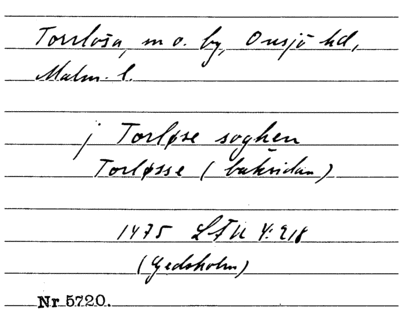 Torrlösa, m o. by, Onsjö hd,
Malm. l.
j Torløse soghen
Torløsse (baksidan)
1475 LfU 4:218
(Gedsholm)
Nr 5720.